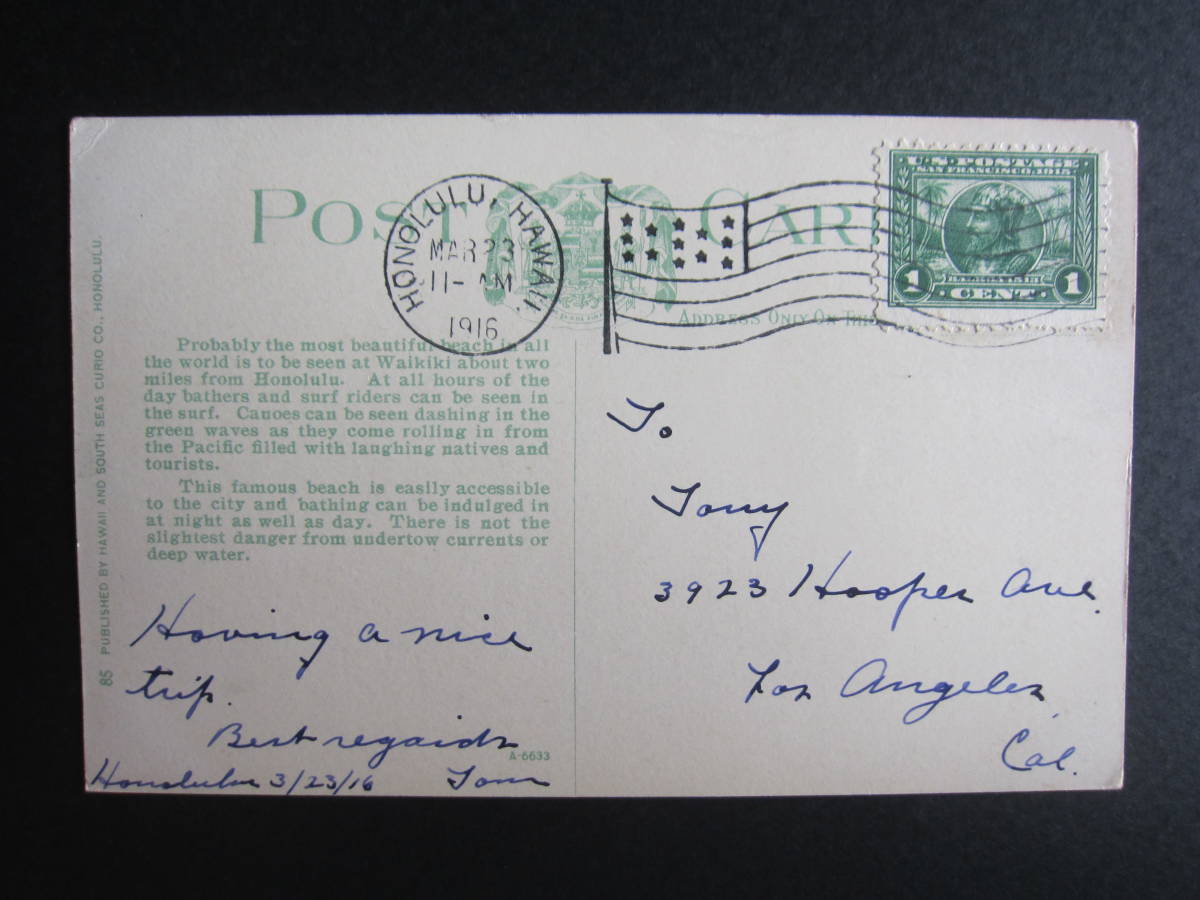 POST CARD
HONOLULU, HAWAII
MAR 23
11- AM
1916
U.S. POSTAGE
SAN FRANCISCO 1915
BALBOA 1513
1 CENT 1
ADDRESS ONLY ON THIS
Probably the most beautiful beach in all
the world is to be seen at Waikiki about two
miles from Honolulu. At all hours of the
day bathers and surf riders can be seen in
the surf. Canoes can be seen dashing in the
green waves as they come rolling in from
the Pacific filled with laughing natives and
tourists.
This famous beach is easily accessible
to the city and bathing can be indulged in
at night as well as day. There is not the
slightest danger from undertow currents or
deep water.
Having a nice
trip.
Best regards
Honolulu 3/23/16 Tom
A-6633
85 PUBLISHED BY HAWAII AND SOUTH SEAS CURIO CO., HONOLULU.
To
Tony
3923 Hooper Ave.
Los Angeles,
Cal.